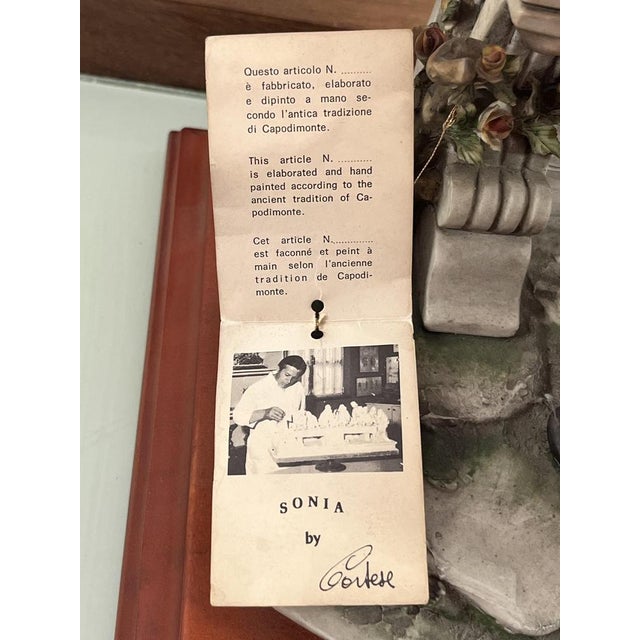 Questo articolo N. ..........
è fabbricato, elaborato
e dipinto a mano se-
condo l'antica tradizione
di Capodimonte.
This article N. ............
is elaborated and hand
painted according to the
ancient tradition of Ca-
podimonte.
Cet article N...............
est faconné et peint à
main selon l'ancienne
tradition de Capodi-
monte.
SONIA
by
Cortese